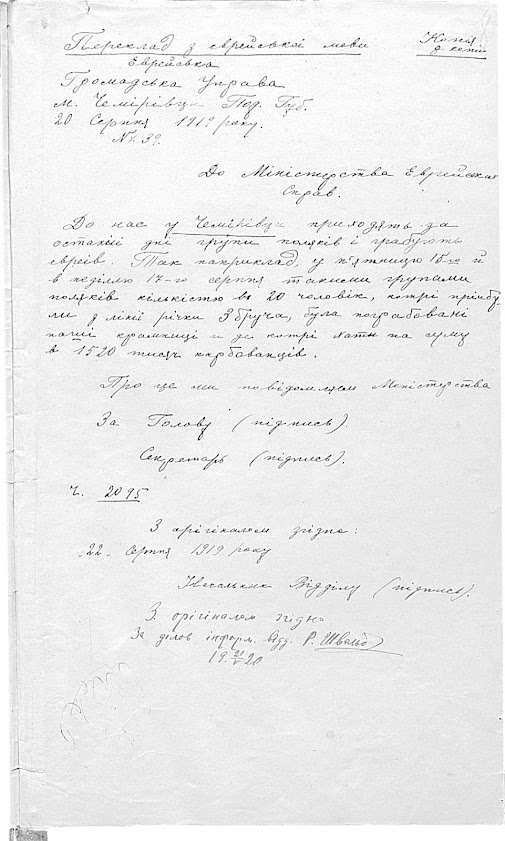 Переклад з єврейської мови
Копія
з копії
Еврейська
Громадська Управа
м. Чемірівці Под. Губ.
20 Серпня 1919 року.
№ 39.
До Міністерства Еврейских
Справ.
До нас у Чемірівці приходять за
останні дні групи поляків і грабують
евреів. Так наприклад, у п'ятницю 15-го й
в неділю 17-го серпня такими групами
поляків кількістю в 20 чоловік, котрі прибу-
ли з лінії річки Збруча, була пограбовані
наші крамниці и де котрі хати на суму
в 1520 тисяч карбованців.
Про це ми повідомляєм Міністерства
За Голову (підпись).
Секретарь (підпись).
Ч. 2095
З орігіналом згідно:
"22" серпня 1919 року
Начальник Відділу (підпись).
З орігіналом згідно
За ділов. інформ. Відд. Р. Швальб
19 21/V 20